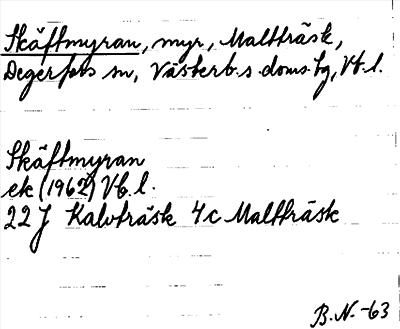 Skäftmyran, myr, Maltträsk,
Degerfors sn, Västerb.s doms.hg, Vb.l.
Skäftmyran
ek (1962) Vb.l.
22 J Kalvträsk 4c Maltträsk
B.N.-63